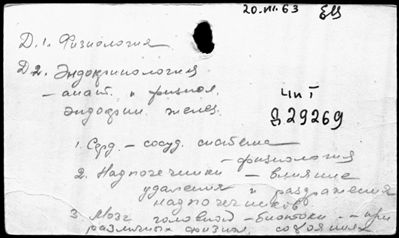 20.VII.63 ЕЦ
Д.1. Физиология
Д2. Эндокринология
- анат. и физиол.
эндокрин. желез.
Чит
Д29269
1. Серд. - сосуд. система
- физиология
2. Надпочечники - влияние
удаления и раздражения
надпочечников
3. Мозг головной - биотоки - при
различных физиол. состояниях